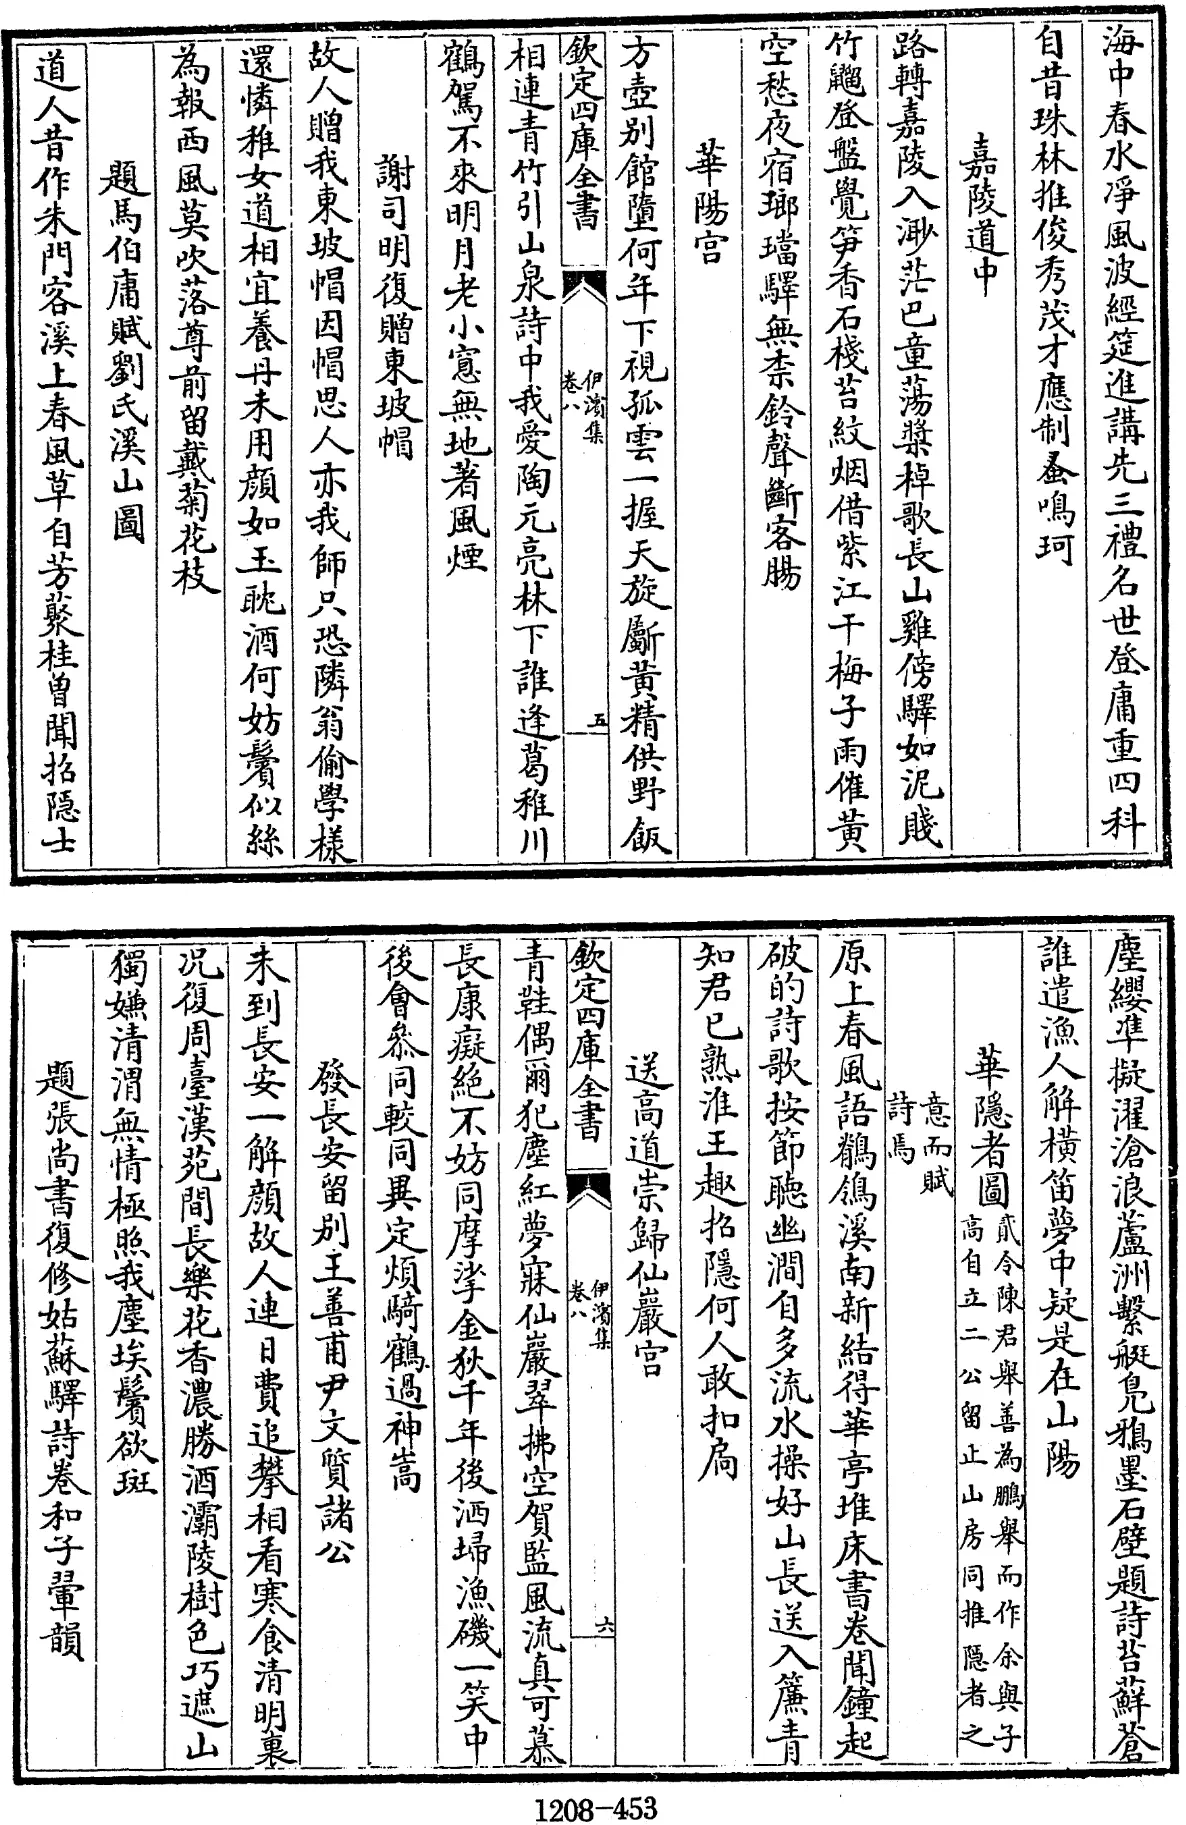 海中春水凈風波經筵進講先三禮名世登庸重四科
自昔珠林推俊秀茂才應制蚤鳴珂
嘉陵道中
路轉嘉陵入渺茫巴童蕩槳棹歌長山雞傍驛如泥賤
竹䶉登盤覺笋香石棧苔紋烟借紫江干梅子雨催黄
空愁夜宿瑯璫驛無柰鈴聲斷客腸
華陽宫
方壺别館墮何年下視孤雲一握天旋斸黄精供野飯
欽定四庫全書
伊濱集
卷八
五
相連青竹引山泉詩中我愛陶元亮林下誰逢葛稚川
鶴駕不來明月老小窻無地著風煙
謝司明復贈東坡帽
故人贈我東坡帽因帽思人亦我師只恐隣翁偷學様
還憐稚女道相宜養丹未用顔如玉耽酒何妨鬢似絲
為報西風莫吹落尊前留戴菊花枝
題馬伯庸賦劉氏溪山圖
道人昔作朱門客溪上春風草自芳䕺桂曽聞招隠士
塵纓準擬濯滄浪蘆洲繫艇鳬鴉墨石壁題詩苔蘚蒼
誰遣漁人解橫笛夢中疑是在山陽
華隱者圖
貳令陳君舉善為鵬舉而作余與子
高自立二公留止山房同推隠者之
意而賦
詩焉
原上春風語鶺鴒溪南新結得華亭堆床書卷聞鐘起
破的詩歌按節聽幽澗自多流水操好山長送入簾青
知君已熟淮王趣招隱何人敢扣扃
送高道崇歸仙巖宫
欽定四庫全書
伊濱集
卷八
六
青鞋偶爾犯塵紅夢寐仙巖翠拂空賀監風流真可慕
長康癡絶不妨同摩挲金狄千年後洒埽漁磯一笑中
後會叅同較同異定煩騎鶴過神嵩
發長安留别王善甫尹文質諸公
未到長安一解顔故人連日費追攀相看寒食清明裏
况復周臺漢苑間長樂花香濃勝酒灞陵樹色巧遮山
獨嫌清渭無情極照我塵埃鬢欲斑
題張尚書復修姑蘇驛詩卷和子翬韻
1208-453